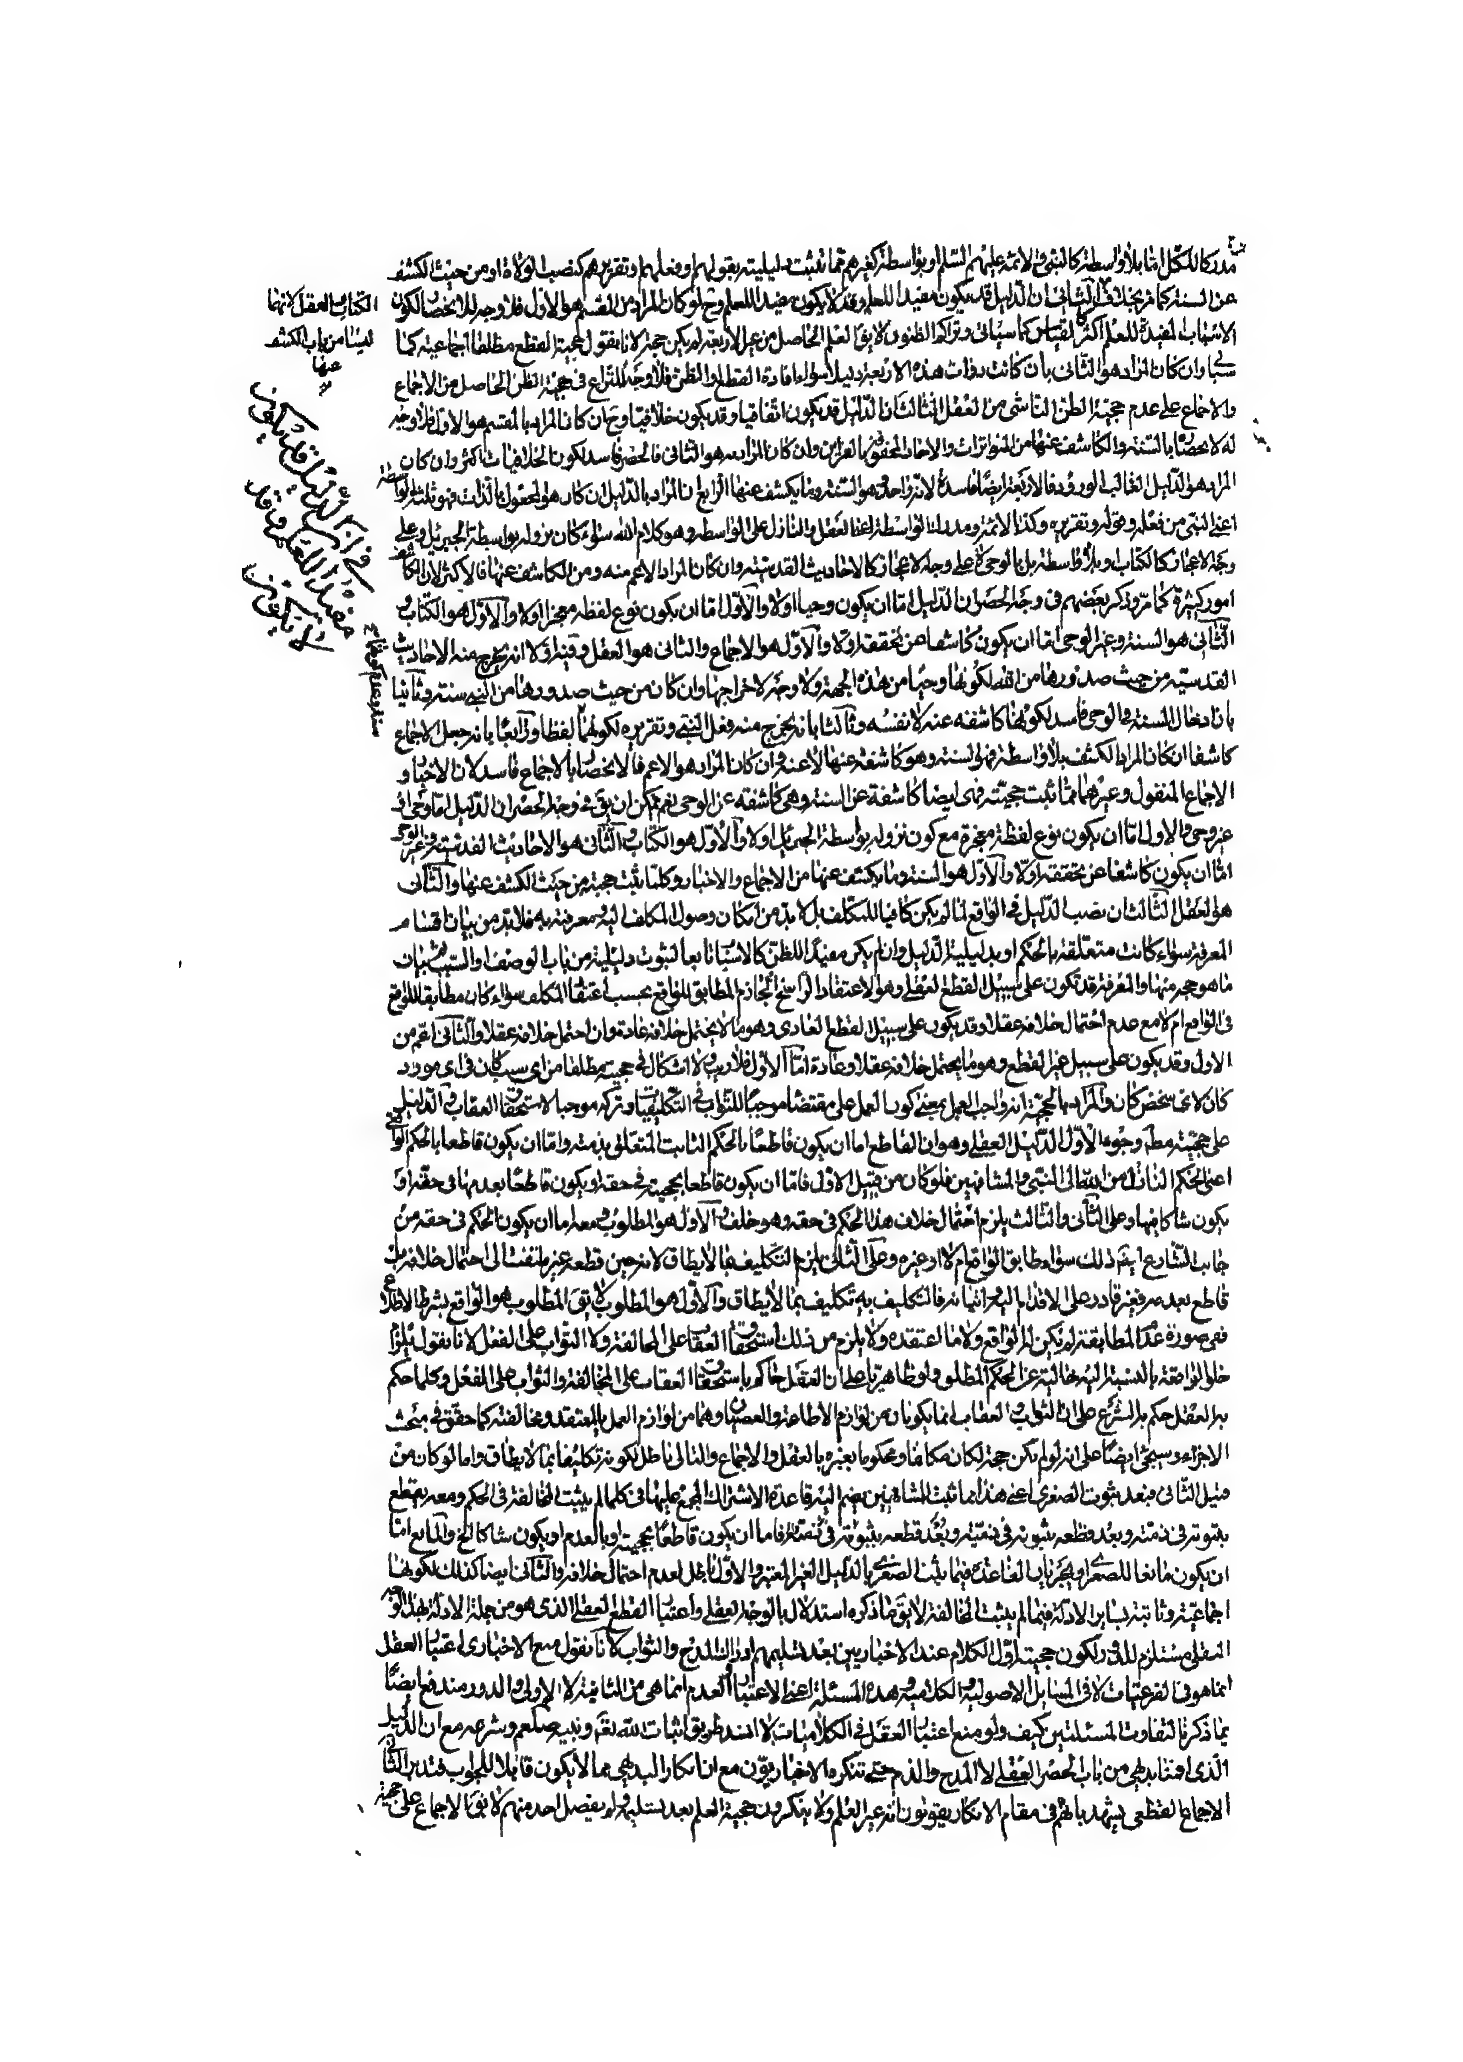 مدركا للكل امّا بلا واسطة كالنبي والائمة عليهم السّلم او بواسطة كغيرهم ممّا تثبت دليليته بقولهم وفعلهم وتقريرهم كنصب الولاة او من حيث الكشف
عن السنة كما مرّ بخلاف الثاني ان الدليل قد يكون مفيدا للعلم وقد لا يكون مفيدا للعلم وح لو كان المراد من المقسم هو الاول فلا وجه للانحصار لكون
الاسباب المفيدة للعلم اكثر كالقياس كما سياتي وتراكم الظنون لا يق العلم الحاصل من غير الاربعة لم يكن حجة لانا نقول حجية القطع مطلقا اجماعية كما
سياتي وان كان المراد هو الثاني بان كانت ذوات هذه الاربعة دليلا سواء افادة القطع والظن فلا وجه للنزاع في حجية الظن الحاصل من الاجماع
والاجماع على عدم حجية الظن الناشي من العقل الثالث ان الدليل قد يكون اتفاقيا وقد يكون خلافيا وح ان كان المراد بالمقسم هو الاول فلا وجه
له لانحصاره بالسنة والكاشف عنها من المتواترات والاخبار المحفوفة بالقراين وان كان المراد به هو الثاني فالحصر فاسد لكون الخلافيات اكثر وان كان
المراد هو الدليل الغالب الورود فالاربعة ايضا فاسدة لانه واحد وهو السنة وما يكشف عنها الرابع ان المراد بالدليل ان كان هو المجعول بالذات فهو ثلثة الواسطة
اعني النبي من فعله وقوله وتقريره وكذا الائمة ومدرك الواسطة اعني العقل والنازل على الواسطه وهو كلام الله سواء كان نزوله بواسطة الجبرئيل وعلى
وجه الاعجاز كالكتاب وبلا واسطة بل بالوحي لا على وجه الاعجاز كالاحاديث القدسية وان كان المراد الاعم منه ومن الكاشف عنها فالاكثر لان الكاشف
امور كثيرة كما مرّ وذكر بعضهم في وجه الحصر ان الدليل امّا ان يكون وحيا اولا والاول امّا ان يكون نوع لفظه معجزا اولا والاول هو الكتاب و
الثاني هو السنة وغير الوحي امّا ان يكون كاشفا عن تحققه اولا والاول هو الاجماع والثاني هو العقل وفيه اولا انه يخرج منه الاحاديث
القدسية من حيث صدورها من الله لكونها وحيا من هذه الجهة ولا وجه لاخراجها وان كان من حيث صدورها من النبي سنة وثانيا
بان ادخال السنة في الوحي فاسد لكونها كاشفه عنه لا نفسه وثالثا بانه يخرج منه فعل النبي وتقريره لكونهما لفظا ورابعا بانه جعل الاجماع
كاشفا ان كان المراد الكشف بلا واسطة فهي السنة وهو كاشفة عنها لا عنه وان كان المراد هو الاعم فالانحصار بالاجماع فاسد لان الاخبار و
الاجماع المنقول وغيرهما ممّا ثبت حجيته فهي ايضا كاشفة عن السنة وهي كاشفه عن الوحي نعم يمكن ان يق في وجه الحصر ان الدليل امّا وحي او
غير وحي والاول امّا ان يكون نوع لفظه معجزة مع كون نزوله بواسطة الجبرئيل اولا والاول هو الكتاب والثاني هو الاحاديث القدسية وغير الوحي
امّا ان يكون كاشفا عن تحققه اولا والاول هو السنة وما يكشف عنها من الاجماع والاخبار وكلما ثبت حجيته من حيث الكشف عنها والثاني
هو العقل الثالث ان نصب الدليل في الواقع لما لم يكن كافيا للمكلف بل لا بد من امكان وصول المكلف اليه ومعرفته به فلابد من بيان اقسام
المعرفة سواء كانت متعلقة بالحكم او بدليلية الدليل وان لم يكن مفيدا للظن كالاسباب تابعا لثبوت دليليته من باب الوصف او السبب بيان
ما هو حجة منها والمعرفة قد تكون على سبيل القطع العقلي وهو الاعتقاد الراسخ الجازم المطابق للواقع بحسب اعتقاد المكلف سواء كان مطابقا للواقع
في الواقع ام لا مع عدم احتمال خلافه عقلا وقد يكون على سبيل القطع العادي وهو ما لا يحتمل خلافه عادة وان احتمل خلافه عقلا والثاني اعم من
الاول وقد يكون على سبيل غير القطع وهو ما يحتمل خلافه عقلا وعادة امّا الاول فلا ريب ولا اشكال في حجيته مطلقا من اي سبب كان في اي مورد
كان لاي شخص كان والمراد بالحجية انه واجب العمل بمعنى كون العمل على مقتضاه موجبا للثواب في التكليفيات وتركه موجبا لاستحقاق العقاب والدليل
على حجيته مطلقا وجوه الاول الدليل العقلي وهو ان القاطع اما ان يكون قاطعا بالحكم الثابت المتعلق بذمته وامّا ان يكون قاطعا بالحكم الواقعي
اعني الحكم النازل من الله الى النبي والمشافهين فلو كان من قبيل الاول فامّا ان يكون قاطعا بحجيته في حقه او يكون قاطعا بعدمها في حقه او
يكون شاكا فيها وعلى الثاني والثالث يلزم احتمال خلاف هذا الحكم في حقه وهو خلف والاول هو المطلوب ومعه اما ان يكون الحكم في حقه من
جانب الشارع ايضا ذلك سواء طابق الواقع ام لا او غيره وعلى الثاني يلزم التكليف بما لا يطاق لانه حين قطعه غير ملتفت الى احتمال خلافه بل
قاطع بعدمه فغير قادر على الاقدام اليه واتيانه فالتكليف به تكليف بما لا يطاق والاول هو المطلوب لا يق المطلوب هو الواقع بشرط الاطلاع
ففي صورة عدم المطابقة لم يكن الواقع ولا ما اعتقده ولا يلزم من ذلك استحقاق العقاب على المخالفة ولا الثواب على الفعل لانا نقول يلزم
خلو الواقعة بالنسبة اليه خالية عن الحكم المطلوب ولو ظاهريا على ان العقل حاكم باستحقاق العقاب على المخالفة والثواب على الفعل وكلما حكم
به العقل حكم به الشرع على ان الثواب والعقاب انما يكونان من لوازم الاطاعة والعصيان وهما من لوازم العمل بالمعتقد ومخالفته كما حقق في مبحث
الاجزاء وسيجئ ايضا على انه لو لم يكن حجة لكان مكلفا ومحكوما بغيره بالعقل والاجماع والتالي باطل لكونه تكليفا بما لا يطاق واما لو كان من
قبيل الثاني فبعد ثبوت الصغرى اعني هذا مما ثبت للمشافهين يضم اليه قاعدة الاشتراك المجمع عليها في كلما لم يثبت المخالفة في الحكم ومعه يقطع
بثبوته في ذمته وبعد قطعه بثبوته في ذمته وبعد قطعه بثبوته في ذمته فاما ان يكون قاطعا بحجيته او بالعدم او يكون شاكا الخ والمانع امّا
ان يكون مانعا للصغرى او لجريان القاعدة فيما يثبت الصغرى بالدليل الغير المعتبر والاول باطل لعدم احتمال خلافه والثاني ايضا كذلك لكونها
اجماعية وثابتة بساير الادلة فيما لم يثبت المخالفة لا يق ما ذكره استدلال بالوجه العقلي واعتبار القطع العقلي الذي هو من جملة الادلة بهذا الوجه
العقلي مستلزم للدور لكون حجيته اول الكلام عند الاخباريين بعد تسليمهم ادراك المدح والثواب لانا نقول منع الاخباري اعتبار العقل
انما هو في الفرعيات لا في المسايل الاصولية والكلامية وهذه المسئلة اعني الاعتبار والعدم انما هي من الثانية لا الاولى والدور مندفع ايضا
بما ذكرنا لتفاوت المسئلتين كيف ولو منع اعتبار العقل في الكلاميات لانسد طريق اثبات الله تعم ونبيه صلعم وشرعه مع ان الدليل
الذي اقمنا بديهي من باب الحصر العقلي لا المدح والذم حتى تنكره الاخباريون مع ان انكار البديهي مما لا يكون قابلا للجواب فتدبر الثاني
الاجماع القطعي يشهد بانهم في مقام الانكار يقولون انه غير العلم ولا ينكرون حجية العلم بعد تسليمه ولم يفصل احد منهم لا يق الاجماع على حجية
الكتاب والعقل لانهما
ليسا من باب الكشف
عنها
فح ان الدليل قد يكون
مفيدا للعلم وقد
لا يكون